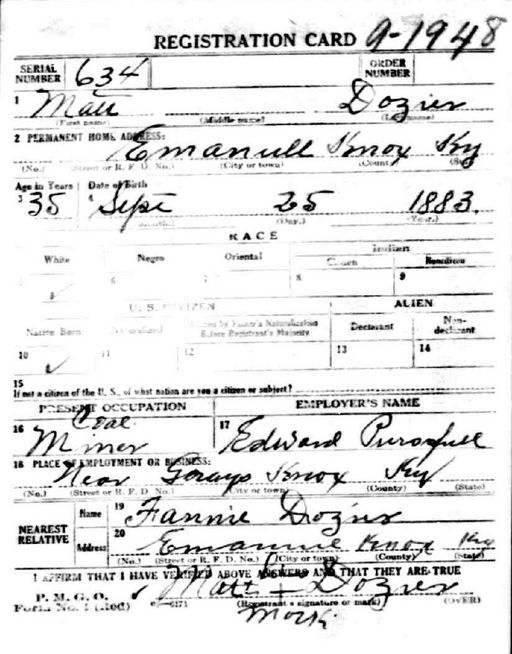 REGISTRATION CARD A-1948
SERIAL NUMBER 634 ORDER NUMBER
1 Matt Dozier
(First name) (Middle name) (Last name)
2 PERMANENT HOME ADDRESS:
Emanuel Knox Ky
(No.) (Street or R. F. D. No.) (City or town) (County) (State)
Age in Years Date of Birth
3 35 4 Sept 25 1883.
(Month.) (Day.) (Year.)
RACE
White Negro Oriental Indian
Citizen Noncitizen
5 ✓ 6 7 8 9
U. S. CITIZEN ALIEN
Native Born Naturalized Citizen by Father's Naturalization Before Registrant's Majority Declarant Non-declarant
10 ✓ 11 12 13 14
15
If not a citizen of the U. S., of what nation are you a citizen or subject?
PRESENT OCCUPATION EMPLOYER'S NAME
16 Coal Miner 17 Edward
18 PLACE OF EMPLOYMENT OR BUSINESS:
Near Grays Knox Ky
(No.) (Street or R. F. D. No.) (City or town) (County) (State)
NEAREST RELATIVE
Name 19 Fannie Dozier
Address 20 Knox Ky
(No.) (Street or R. F. D. No.) (City or town) (County) (State)
I AFFIRM THAT I HAVE VERIFIED ABOVE ANSWERS AND THAT THEY ARE TRUE
P. M. G. O.
Form No. 1 (Red) Matt Dozier
(Registrant's signature or mark) (OVER)
mark